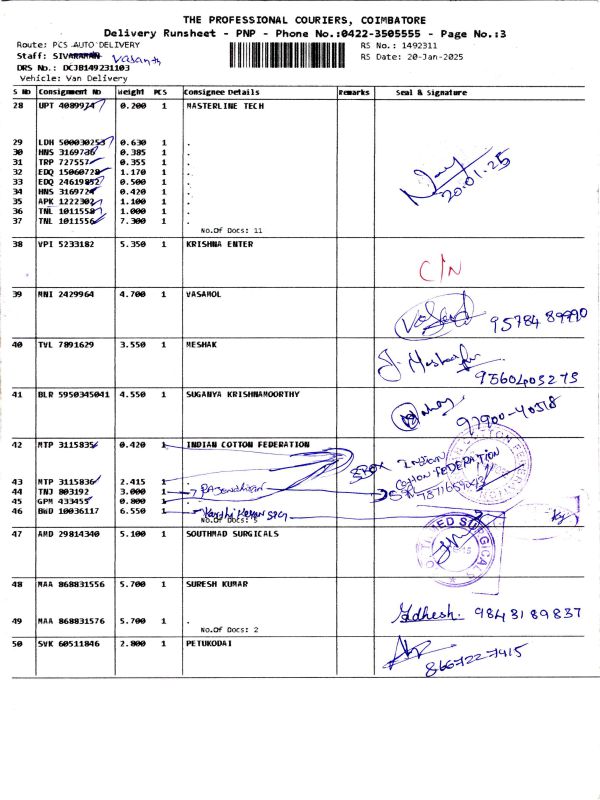 THE PROFESSIONAL COURIERS, COIMBATORE
Delivery Runsheet - PNP - Phone No.:0422-3505555 - Page No.:3
Route: PCS AUTO DELIVERY RS No.: 1492311
Staff: Vasanth RS Date: 20-Jan-2025
DRS No.: DCJB149231103
Vehicle: Van Delivery
S No Consignment No Weight PCS Consignee Details Remarks Seal & Signature
28 UPT 0.200 1 MASTERLINE TECH
29 LDH 0.630 1 .
30 HNS 0.385 1 .
31 TRP 0.355 1 .
32 EDQ 1.170 1 .
33 EDQ 0.500 1 .
34 HNS 0.420 1 .
35 APK 1.100 1 .
36 TNL 1.000 1 .
37 TNL 7.300 1 .
No.Of Docs: 11
20.01.25
38 VPI 5233182 5.350 1 KRISHNA ENTER
C/N
39 MNI 2429964 4.700 1 VASAMOL
95784 89990
40 TVL 7891629 3.550 1 MESHAK
9560405275
41 BLR 5950345041 4.550 1 SUGANYA KRISHNAMOORTHY
97900-40518
42 MTP 0.420 1 INDIAN COTTON FEDERATION
5 BOX INDIAN
COTTON FEDERATION
43 MTP 2.415 1
44 TNJ 803192 3.000 1
45 GPM 433455 0.800 1
46 BWD 10036117 6.550 1
No.Of Docs: 5
47 AMD 29814340 5.100 1 SOUTHMAD SURGICALS
48 MAA 868831556 5.700 1 SURESH KUMAR
49 MAA 868831576 5.700 1 .
No.Of Docs: 2
98431 89837
50 SVK 60511846 2.800 1 PETUKODAI
866722-7415